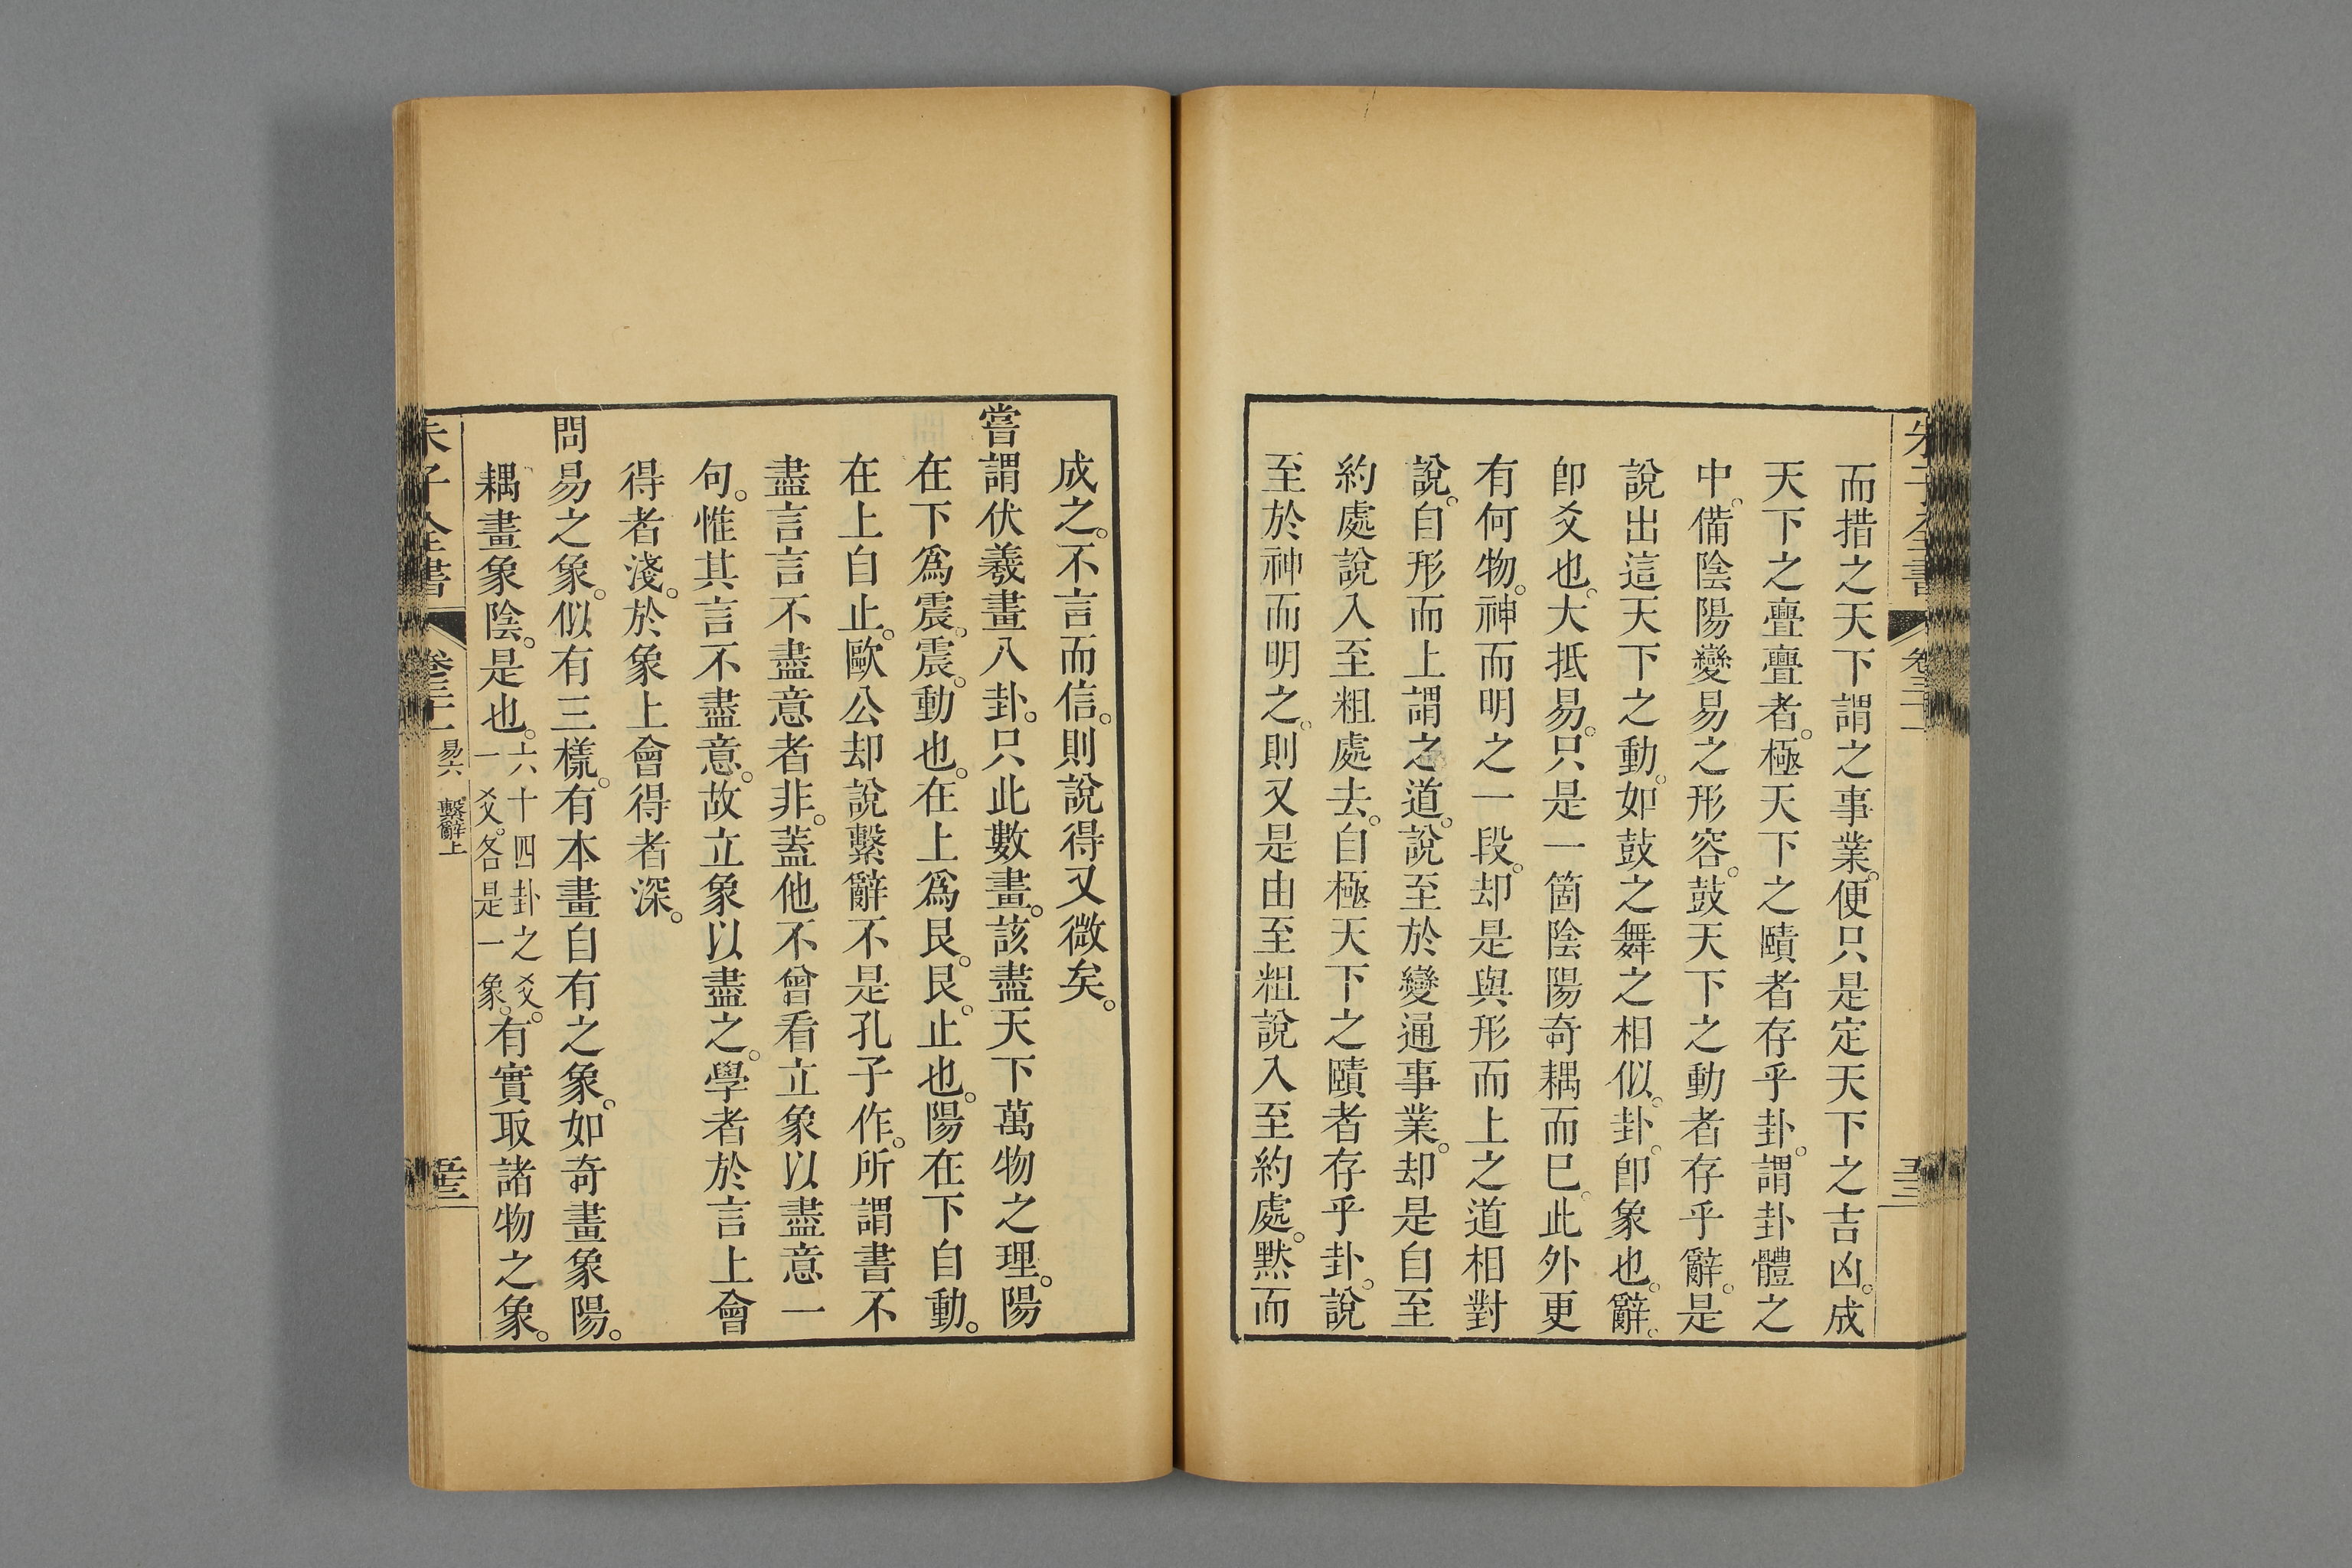 而措之天下謂之事業。便只是定天下之吉凶。成
天下之亹亹者。極天下之賾者存乎卦。謂卦體之
中。備陰陽變易之形容。鼓天下之動者存乎辭。是
說出這天下之動。如鼓之舞之相似。卦。卽象也。辭。
卽爻也。大抵易。只是一箇陰陽奇耦而已。此外更
有何物。神而明之一段。却是與形而上之道相對
說。自形而上謂之道。說至於變通事業。却是自至
約處說入至粗處去。自極天下之賾者存乎卦。說
至於神而明之。則又是由至粗說入至約處。黙而
成之。不言而信。則說得又微矣。
嘗謂伏羲畫八卦。只此數畫。該盡天下萬物之理。陽
在下爲震。震。動也。在上爲艮。艮。止也。陽在下自動。
在上自止。歐公却說繫辭不是孔子作。所謂書不
盡言言不盡意者非。蓋他不曾看立象以盡意一
句。惟其言不盡意。故立象以盡之。學者於言上會
得者淺。於象上會得者深。
問易之象。似有三樣。有本畫自有之象。如奇畫象陽。
耦畫象陰。是也。六十四卦之爻。一爻。各是一象。有實取諸物之象。
朱子全書
易六
繫辭上